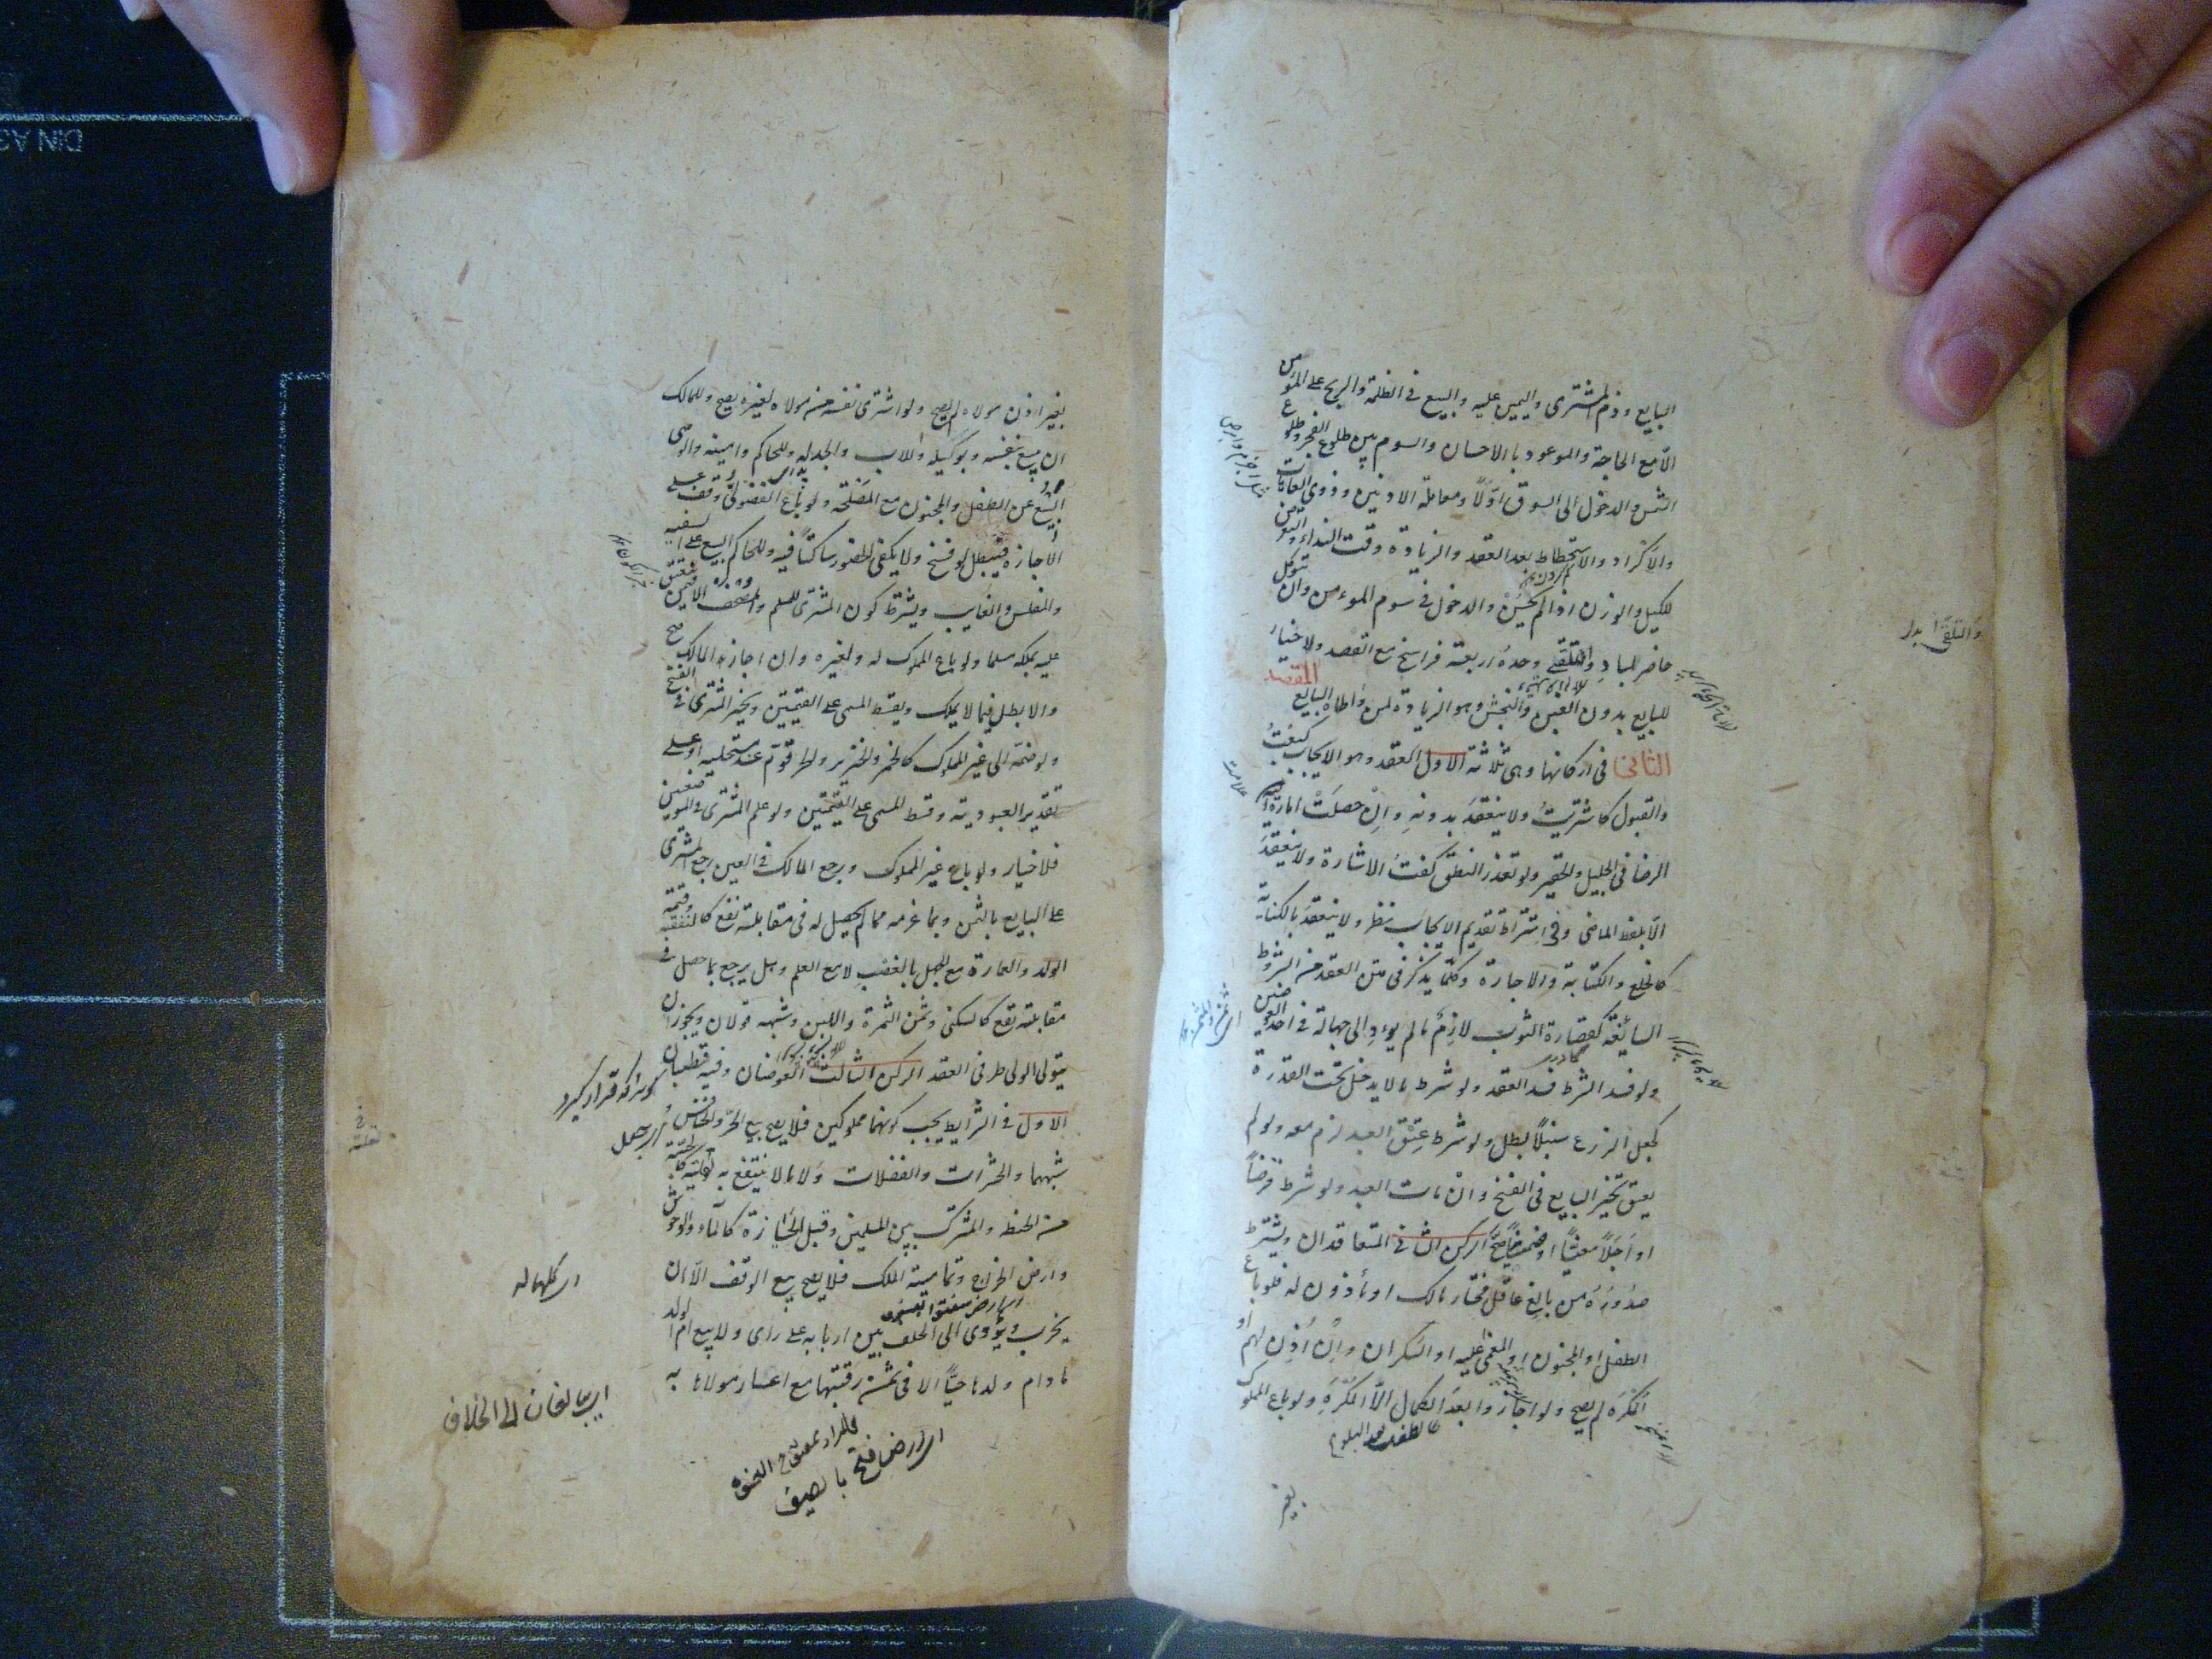 البايع وذم المشترى واليمين عليه والبيع فى الظلمة والربح على المؤمن
الّا مع الحاجة والموعود بالاحسان والسوم بين طلوع الفجر وطلوع
الشمس والدخول الى السوق اوّلًا ومعاملة الادنين وذوى العاهات
والاكراد والاستحطاط بعد العقد والزيادة وقت النداء والتعرض
للكيل والوزن اذا لم يحسن والدخول فى سوم المؤمن وان يتوكل
حاضر لباد والتلقى وحده اربعة فراسخ مع القصد ولا خيار
للبايع بدون الغبن والنجش وهو الزيادة لمن واطاه البايع المقصد
الثانى فى اركانها وهى ثلاثة الاول العقد وهو الايجاب كبعتُ
والقبول كاشتريتُ ولا ينعقد بدونه وان حصلت امارة
الرضا فى الجليل والحقير ولو تعذر النطق كفت الاشارة ولا ينعقد
الّا بلفظ الماضى وفى اشتراط تقديم الايجاب نظر ولا ينعقد بالكناية
كالخلع والكتابة والاجارة وكلما يذكر فى متن العقد من الشروط
السائغة كقصارة الثوب لازم ما لم يؤد الى جهالة فى احد العوضين
ولو فسد الشرط فسد العقد ولو شرط ما لا يدخل تحت القدرة
كجعل الزرع سنبلًا بطل ولو شرط عتق العبد لزم معه ولو لم
يعتق تخير البايع فى الفسخ وان مات العبد ولو شرط قرضًا
او اجلًا معينًا او ضمينًا صح الركن الثانى المتعاقدان ويشترط
صدوره من بالغ عاقل مختار مالك او مأذون له فلو باع
الطفل او المجنون او المغمى عليه او السكران وان اُذِن لهم او
المكرَه لم يصح ولو اجازوا بعد الكمال الّا المُكرَه ولو باع المملوك
كالطفل بعد البلوغ
بغير
بغير اذن مولاه لم يصح ولو اشترى نفسه من مولاه لغيره يصح وللمالك
ان يبيع بنفسه وبوكيله والاب والجد له وللحاكم وامينه والوصى
البيع عن الطفل والمجنون مع المصلحة ولو باع الفضولى وقف على
الاجازة فيبطل لو فسخ ولا يكفى الحضور ساكتًا فيه وللحاكم البيع على السفيه
والمفلس والغايب ويشترط كون المشترى للمسلم والمصحف الا فيمن ينعتق
عليه بملكه مسلما ولو باع المملوك له ولغيره وان اجازه المالك صح
والا بطل فيما لا يملك ويقسط المسمى على القيمتين ويخير المشترى فى الفسخ
ولو ضمه الى غير المملوك كالخمر والخنزير والحر قوّم عند مستحليه او على
تقدير العبودية وقسط المسمى على القيمتين ولو علم المشترى فى الموضعين
فلا خيار ولو باع غير المملوك ورجع المالك فى العين رجع المشترى
على البايع بالثمن وبما غرمه مما لم يحصل له فى مقابلته نفع كالنفقة وقيمة
الولد والعمارة مع الجهل بالغصب لا مع العلم وهل يرجع بما حصل فى
مقابلته نفع كالسكنى وثمن الثمرة واللبن وشبهه قولان ويجوز ان
يتولى الولى طرفى العقد الركن الثالث العوضان وفيه قطبان
الاول فى الشرايط يجب كونهما مملوكين فلا يصح بيع الحر والخنافس
شبهها والحشرات والفضلات ولا ما لا ينتفع به لقلته كالحبة
من الحنطة والمشترك بين المسلمين وقبل الحيازة كالماء والوحوش
وارض الخراج وتمامية الملك فلا يصح بيع الوقف الّا ان
يخرب ويؤدى الى الخلف بين اربابه على رأى ولا بيع ام الولد
ما دام ولدها حيًّا الا فى ثمن رقبتها مع اعسار مولاها به